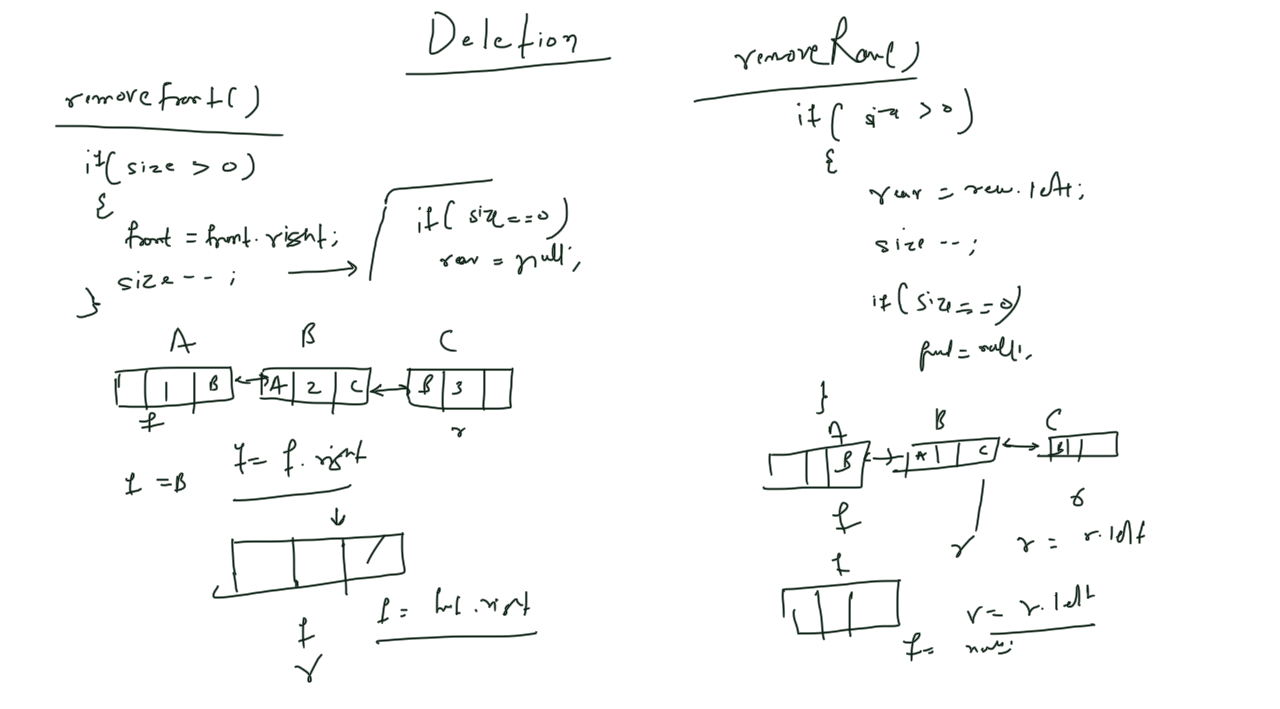 Deletion
removefront()
if(size > 0)
{
front = front.right;
size--;
}
if(size==0)
rear = null;
A B C
1 B A 2 C B 3
f r
f = B
f = f.right
f
r
f = .right
remove
if( size > 0)
{
rear = rear.left;
size --;
if(size==0)
= null;
}
A B C
B A C B
f r r
r = r.left
f
r = r.left
f = null;